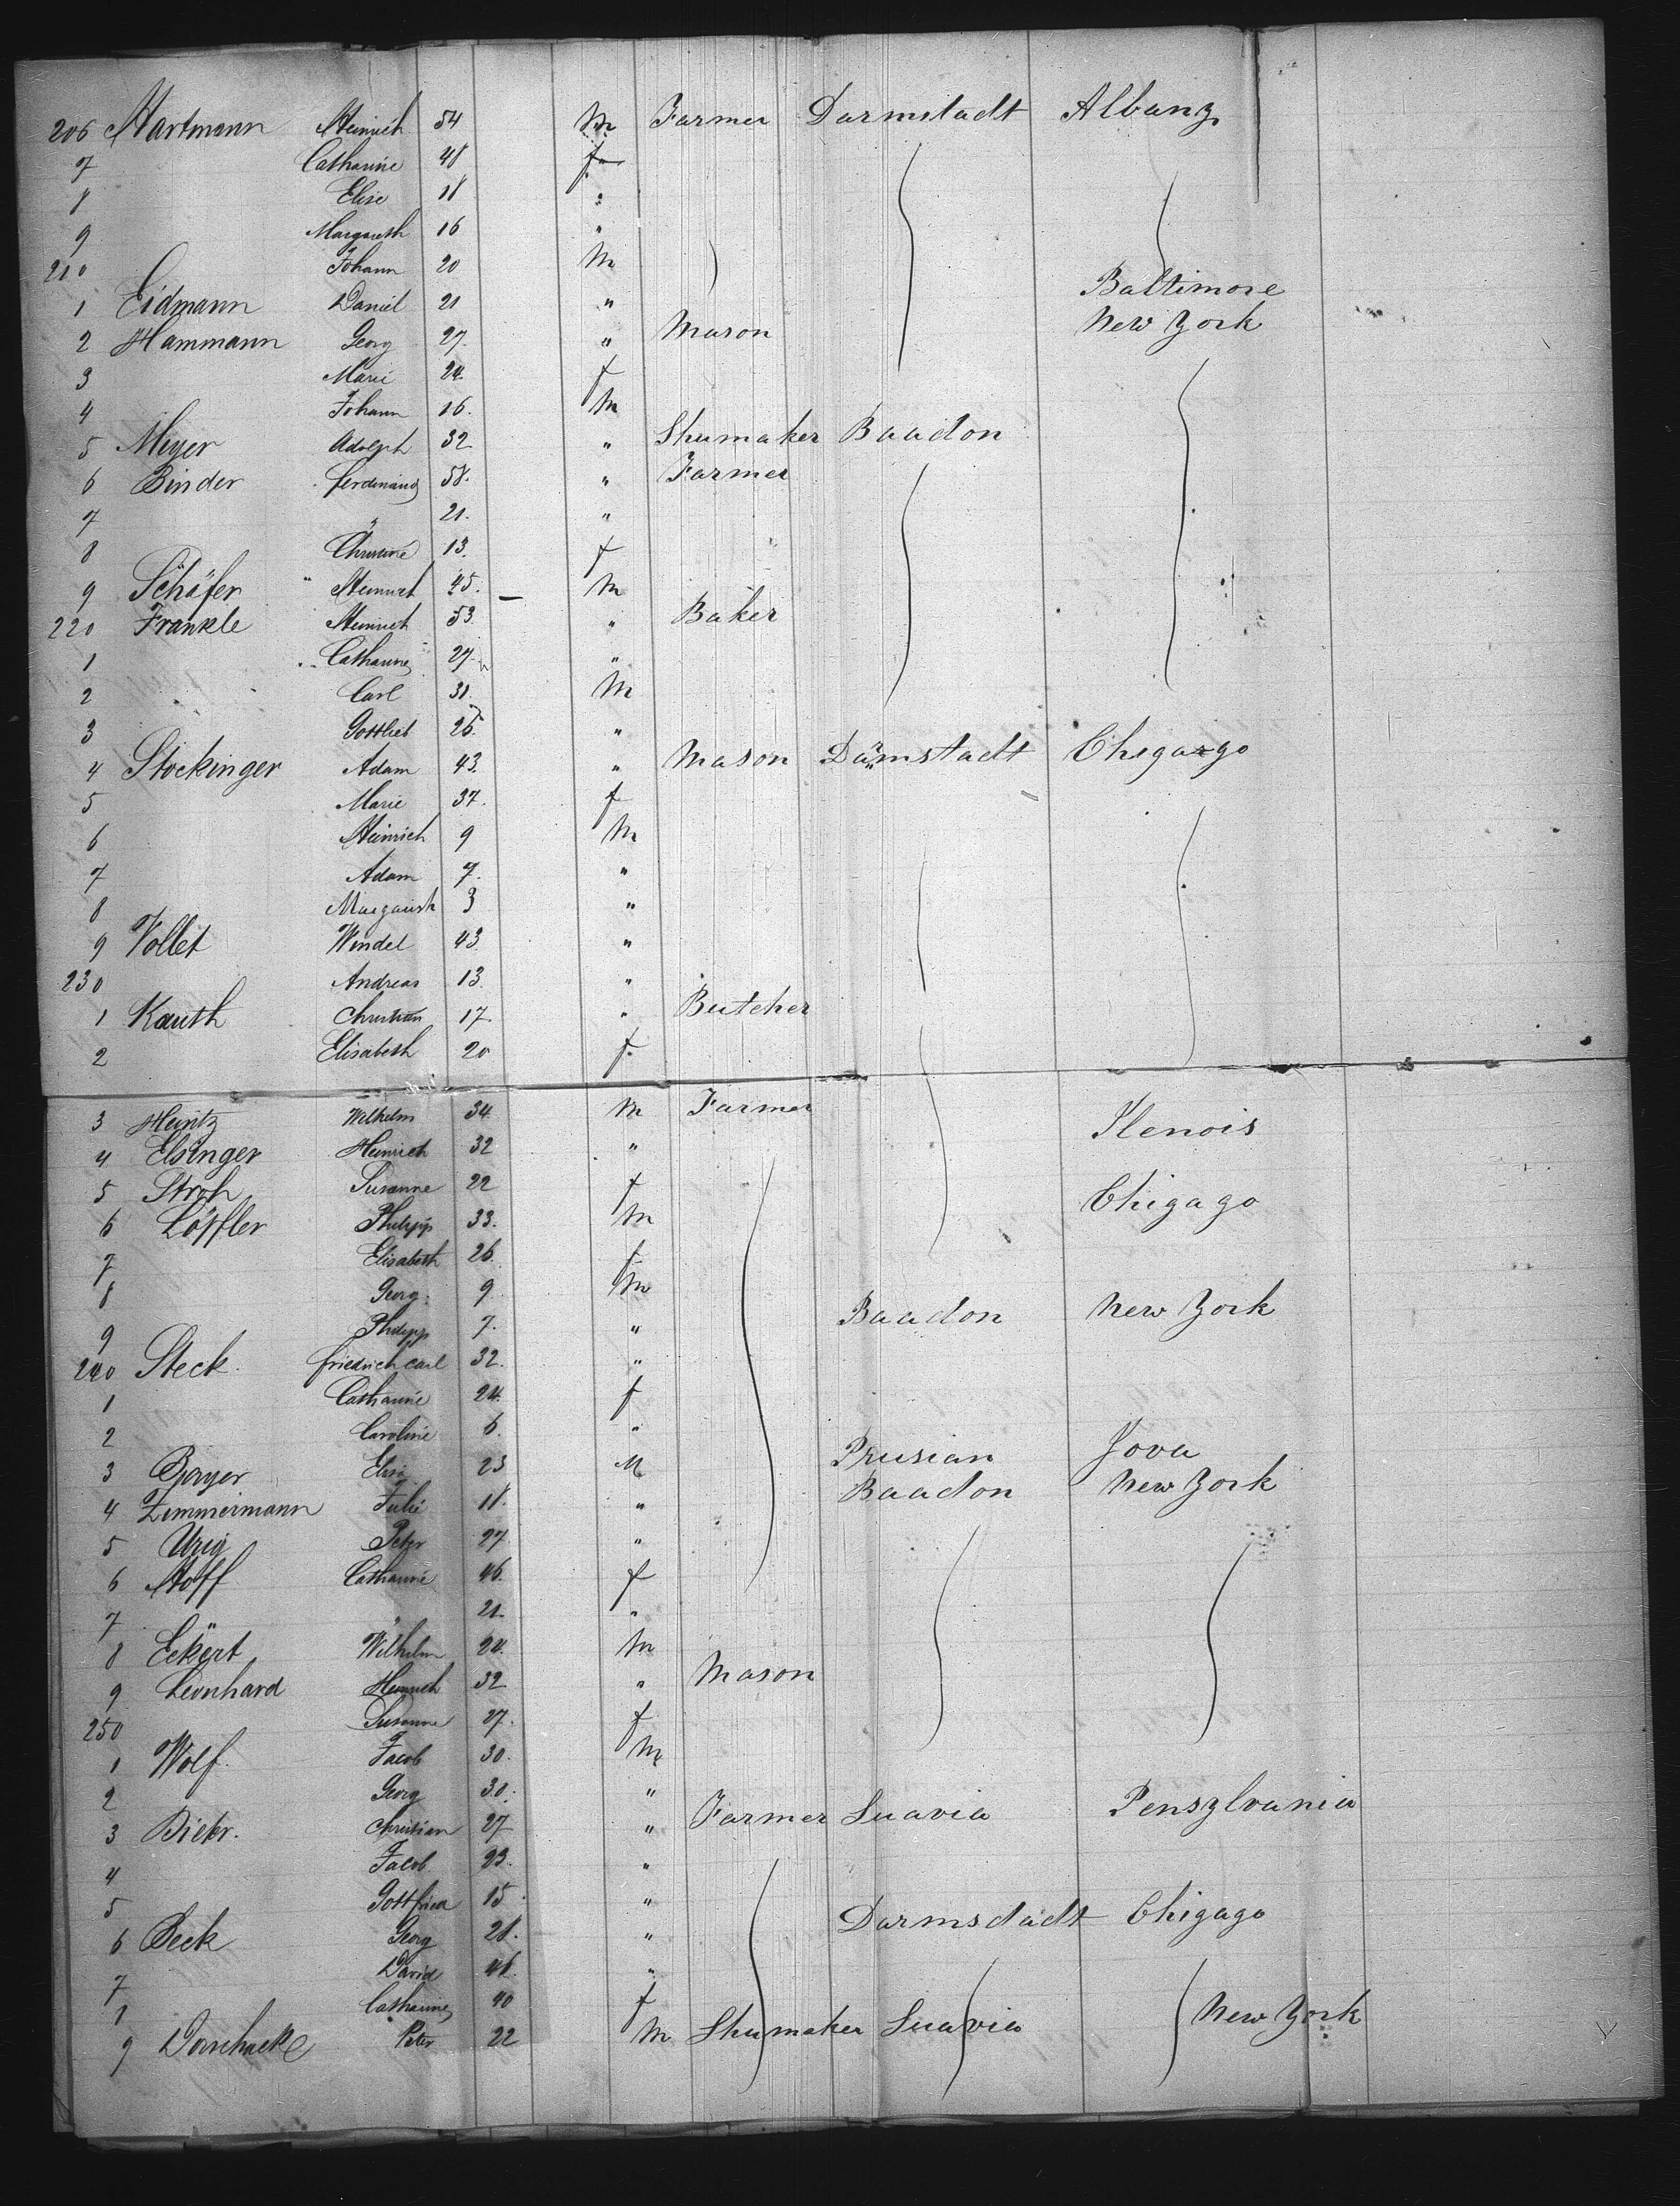 206 Hartmann Heinrich 54 m Farmer Darmstadt Albany
7 Catharine 48 f
8 Elise 18 "
9 Margareth 16 "
210 Johann 20 m
1 Eidmann Daniel 21 " Baltimore
2 Hammann Georg 27. " Mason New York
3 Marie 24 f
4 Johann 16. m
5 Meyer Adolph 32 " Shumaker Baadon
6 Binder Ferdinand 58. " Farmer
7 " 21. "
8 Christine 13. f
9 Schäfer Heinrich 45. m
220 Frankle Heinrich 53. " Baker
1 Catharine 27 "
2 Carl 31. m
3 Gottlieb 26. "
4 Stockinger Adam 43. " Mason Darmstadt Chegargo
5 Marie 37. f
6 Heinrich 9 m
7 Adam 7. "
8 Margareth 3 "
9 Vollet Windel 43. "
230 Andreas 13. "
1 Kauth Christian 17. " Butcher
2 Elisabeth 20 f.
3 Heintz Wilhelm 34 m Farmer Ilenois
4 Elsinger Heinrich 32 "
5 Stroh Susanne 22 f Chigago
6 Löffler Philipp 33. m
7 Elisabeth 26. f
8 Georg 9 m
9 Philipp 7. " Baadon New York
240 Steck. Friedrich Carl 32. "
1 Catharine 24. f
2 Caroline 6. "
3 Elise 23 M Prusian Jova
4 Zimmermann Julie 18. " Baadon New York
5 Urig Peter 27 "
6 Hoff Catharine 46. f
7 " 21. "
8 Eckert Wilhelm 24. m
9 Leonhard Heinrich 32 " Mason
250 Susanne 27. f
1 Wolf. Jacob 30. m
2 Georg 30. "
3 Christian 27 " Farmer Suavia Pensylvania
4 Jacob 23. "
5 Gottfried 15 "
6 Beck Georg 28. " Darmsdadt Chigago
7 David 48. "
8 Catharine 40 f
9 Peter 22 m Shumaker Suavia New York